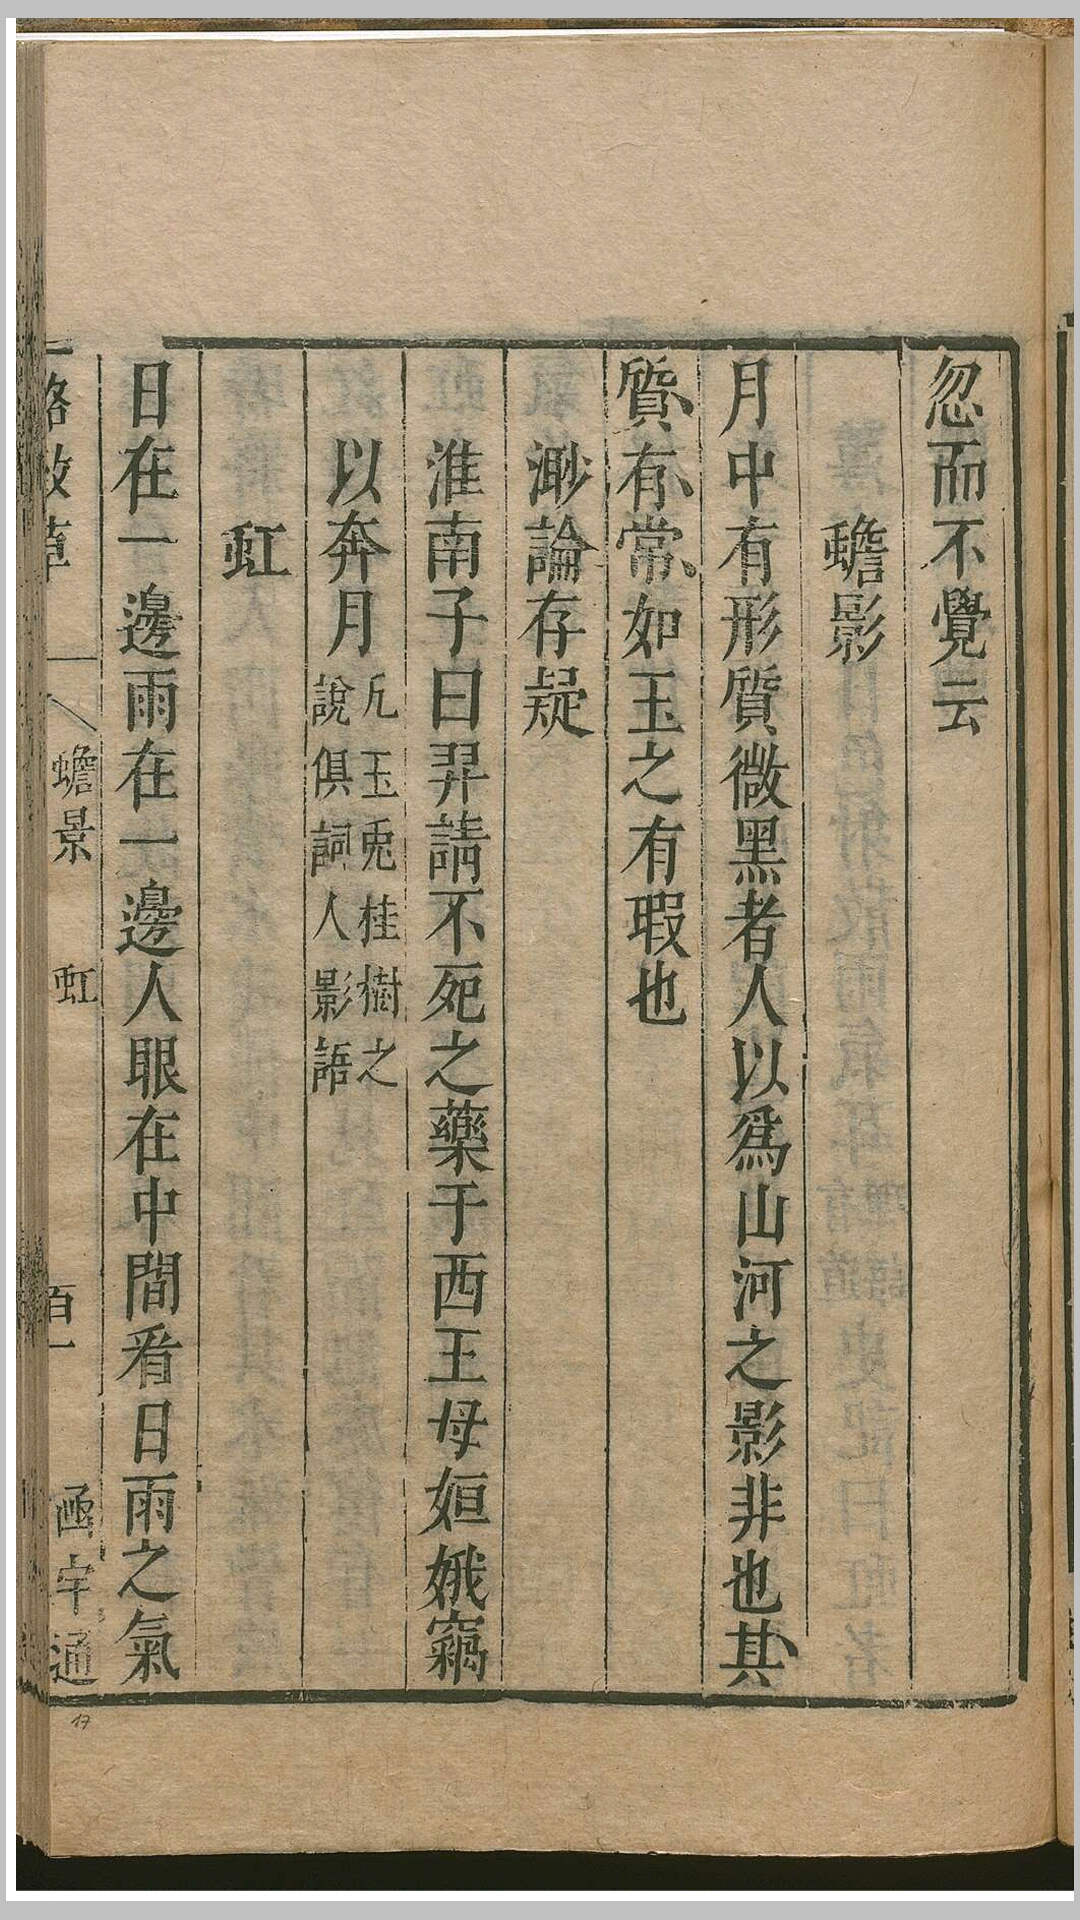 忽而不覺云
蟾影
月中有形質微黑者人以爲山河之影非也其
質有常如玉之有瑕也
渺論存疑
淮南子曰羿請不死之藥于西王母姮娥竊
以奔月凡玉兎桂樹之
說俱詞人影語
虹
日在一邊雨在一邊人眼在中間看日雨之氣
格致草 蟾景 虹 百一 函宇通
17